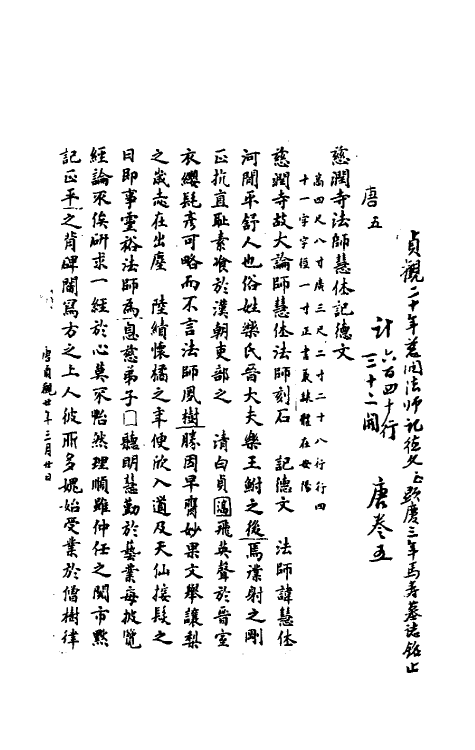 貞觀二十年慈润法師記德文止顕慶三年馬壽墓誌銘止
計 六百四十行
三十二開
唐卷五
唐五
慈潤寺法師慧休記德文
高四尺八寸廣三尺二寸二十八行行四
十一字字徑一寸正書隷額在安陽
慈潤寺故大論師慧休法師刻石 記德文 法師諱慧休
河間平舒人也俗姓樂氏晉大夫樂王鮒之後焉濮射之剛
正抗直耻素飡於漢朝吏部之 清白貞 飛英聲於晉室
衣纓髦彥可略而不言法師風樹勝因早齊妙果文舉讓梨
之歲志在出塵 陸績懷橘之年便欣入道及天仙接髮之
日即事靈裕法師為息慈弟子□聽明慧勤於藝業每披覽
經論不俟研求一經於心莫不怡然理順雖仲任之閱市默
記正平之背碑闇寫方之上人彼所多媿始受業於僧樹律
唐貞觀廿年三月廿日